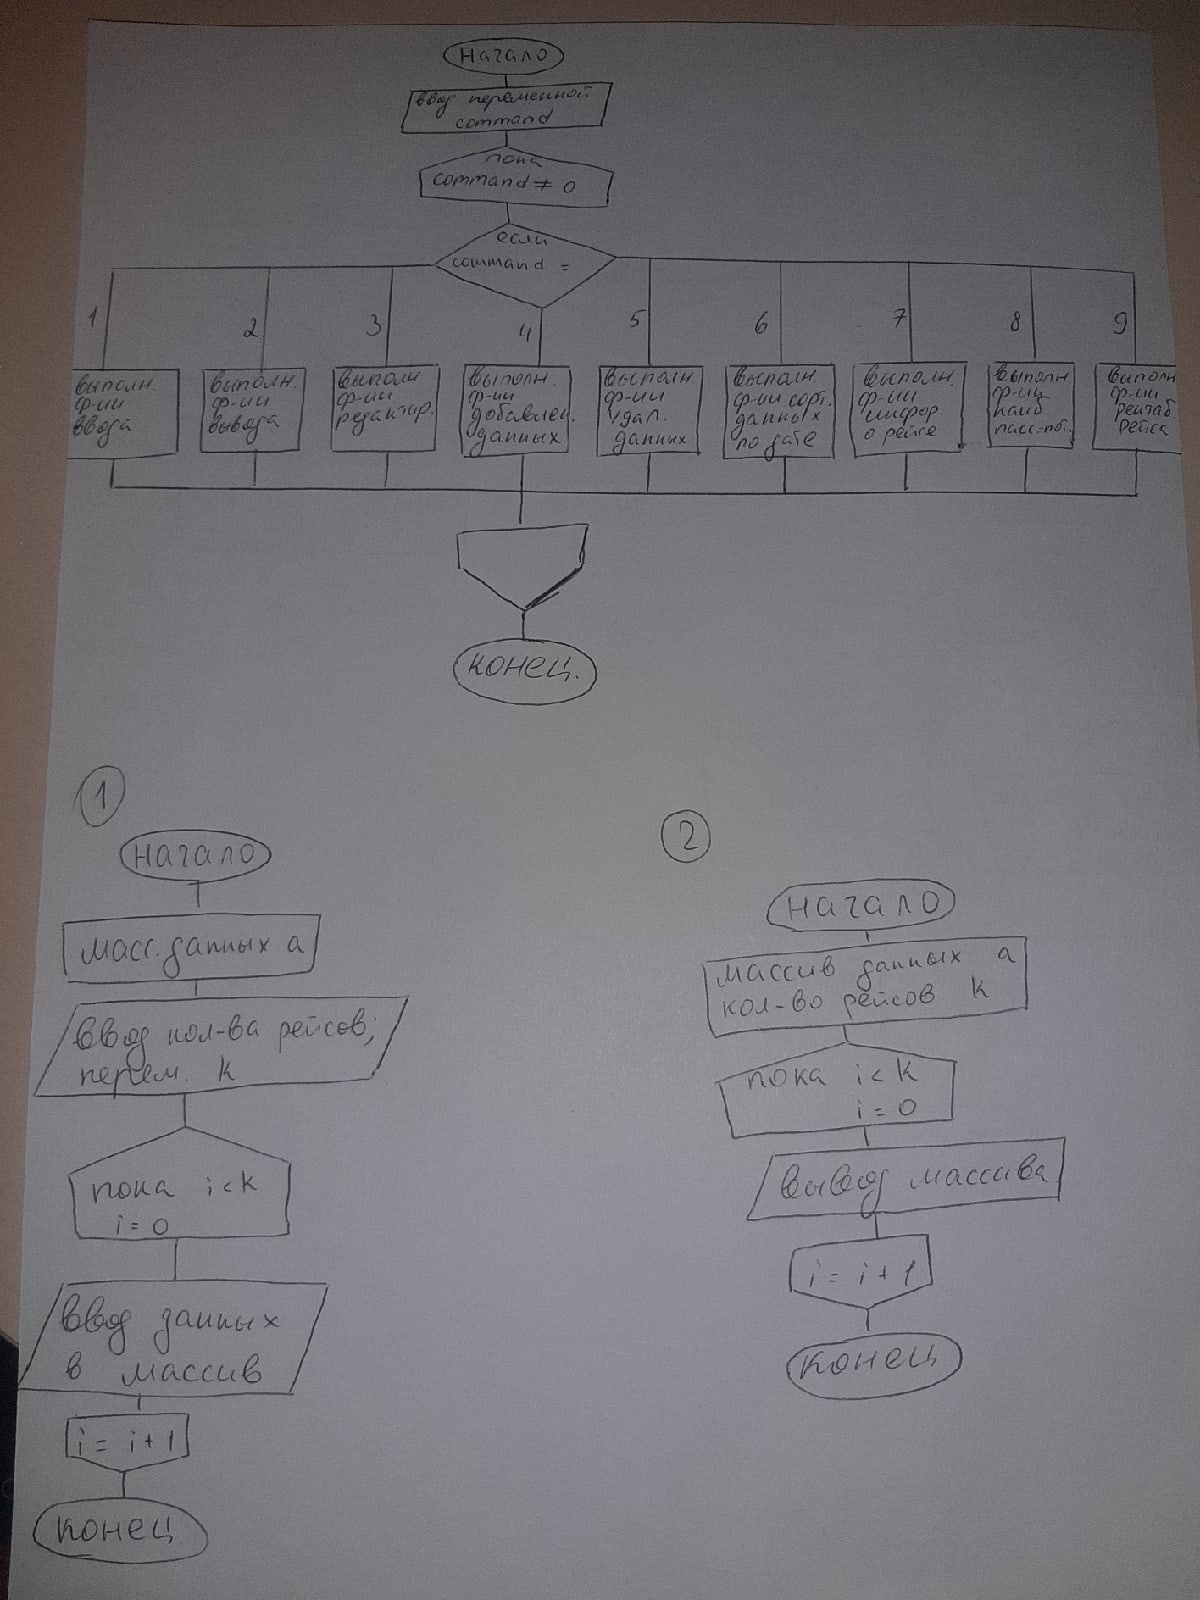 Начало
ввод переменной
command
пока
command ≠ 0
если
command =
1
2
3
4
5
6
7
8
9
выполн.
ф-ии
ввода
выполн.
ф-ии
вывода
выполн
ф-ии
редактир.
выполн.
ф-ии
добавлен.
данных
выполн
ф-ии
удал.
данных
выполн.
ф-ии сорт.
данных
по дате
выполн.
ф-ии
инфор.
о рейсе
выполн
ф-ии
наиб
пасс-по.
выполн
ф-ии
рентаб.
рейса
конец.
1
Начало
масс. данных a
Ввод кол-ва рейсов;
перем. k
пока i < k
i = 0
Ввод данных
в массив
i = i + 1
конец
2
Начало
массив данных a
кол-во рейсов k
пока i < k
i = 0
вывод массива
i = i + 1
конец